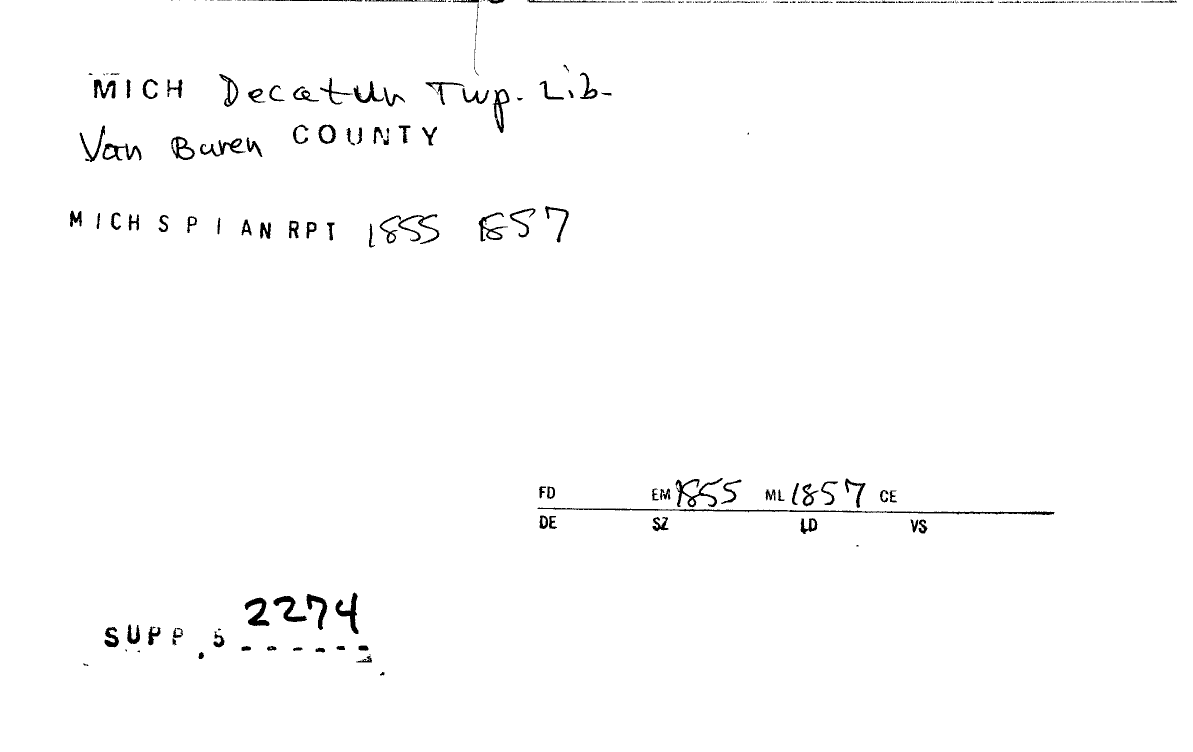 MICH Decatur Twp. Lib.
Van Buren COUNTY
MICH S P I AN RPT 1855 1857
FD EM 1855 ML 1857 CE
DE SZ LD VS
2274
SUPP. 5 ------